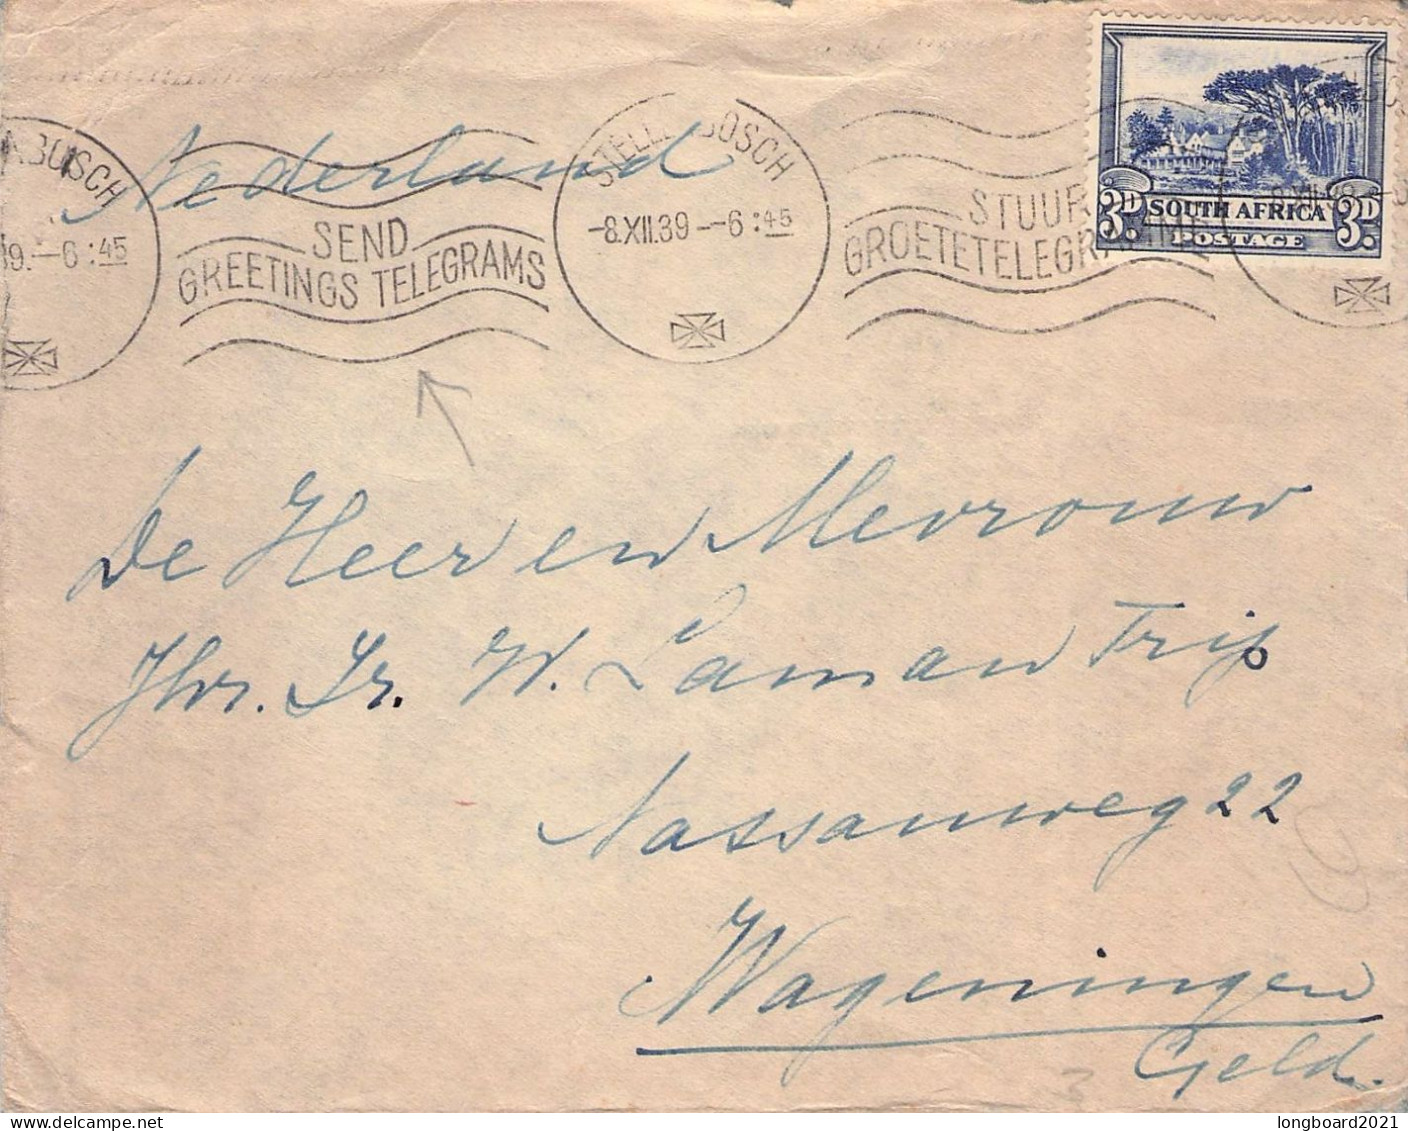 Nederland
STELLENBOSCH
-8.XII.39 --6:45
SEND
GREETINGS TELEGRAMS
STUUR
GROETETELEGRAMME
39. --6:45
3D SOUTH AFRICA 3D
POSTAGE
De Heer en Mevrouw
Jhr. Ir. W. Laman Trip
Nassauweg 22
Wageningen
Geld.
delcampe.net
longboard2021